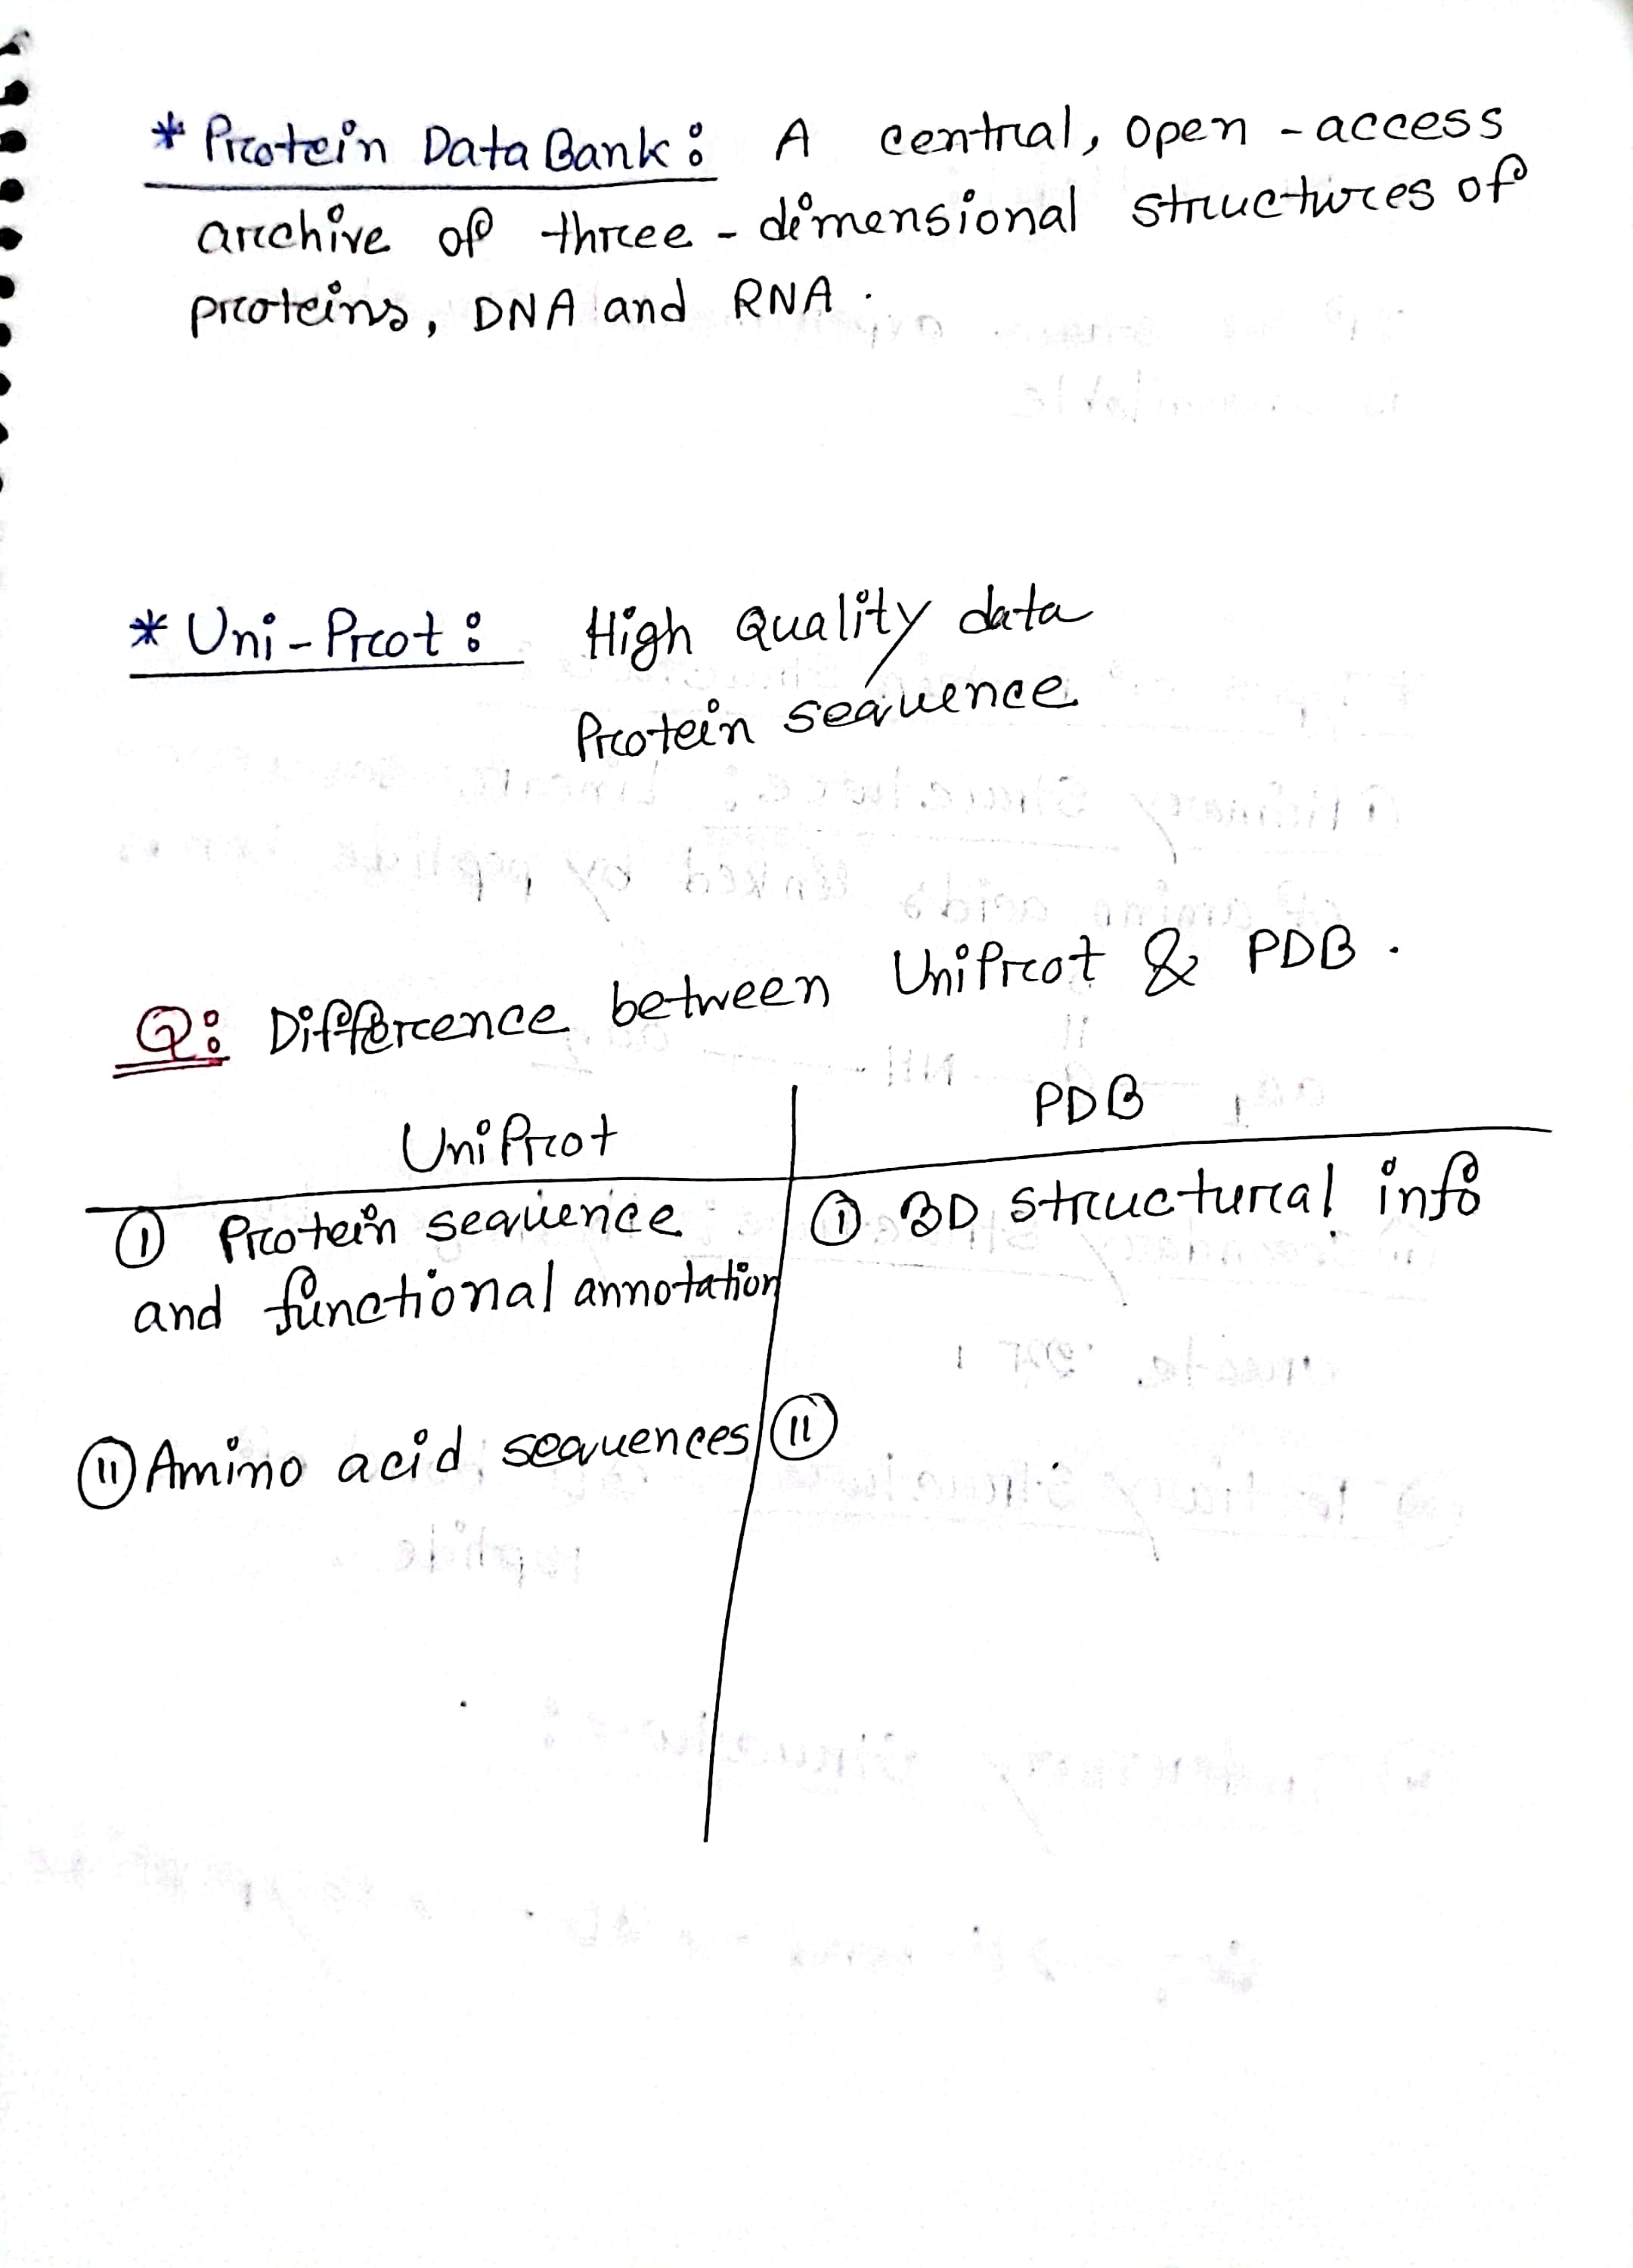 * Protein Data Bank: A central, open-access
archive of three-dimensional structures of
proteins, DNA and RNA.
* Uni-Prot: High Quality data
Protein sequence
Q: Difference between UniProt & PDB.
UniProt PDB
(i) Protein sequence (i) 3D structural info
and functional annotation
(ii) Amino acid sequences (ii)